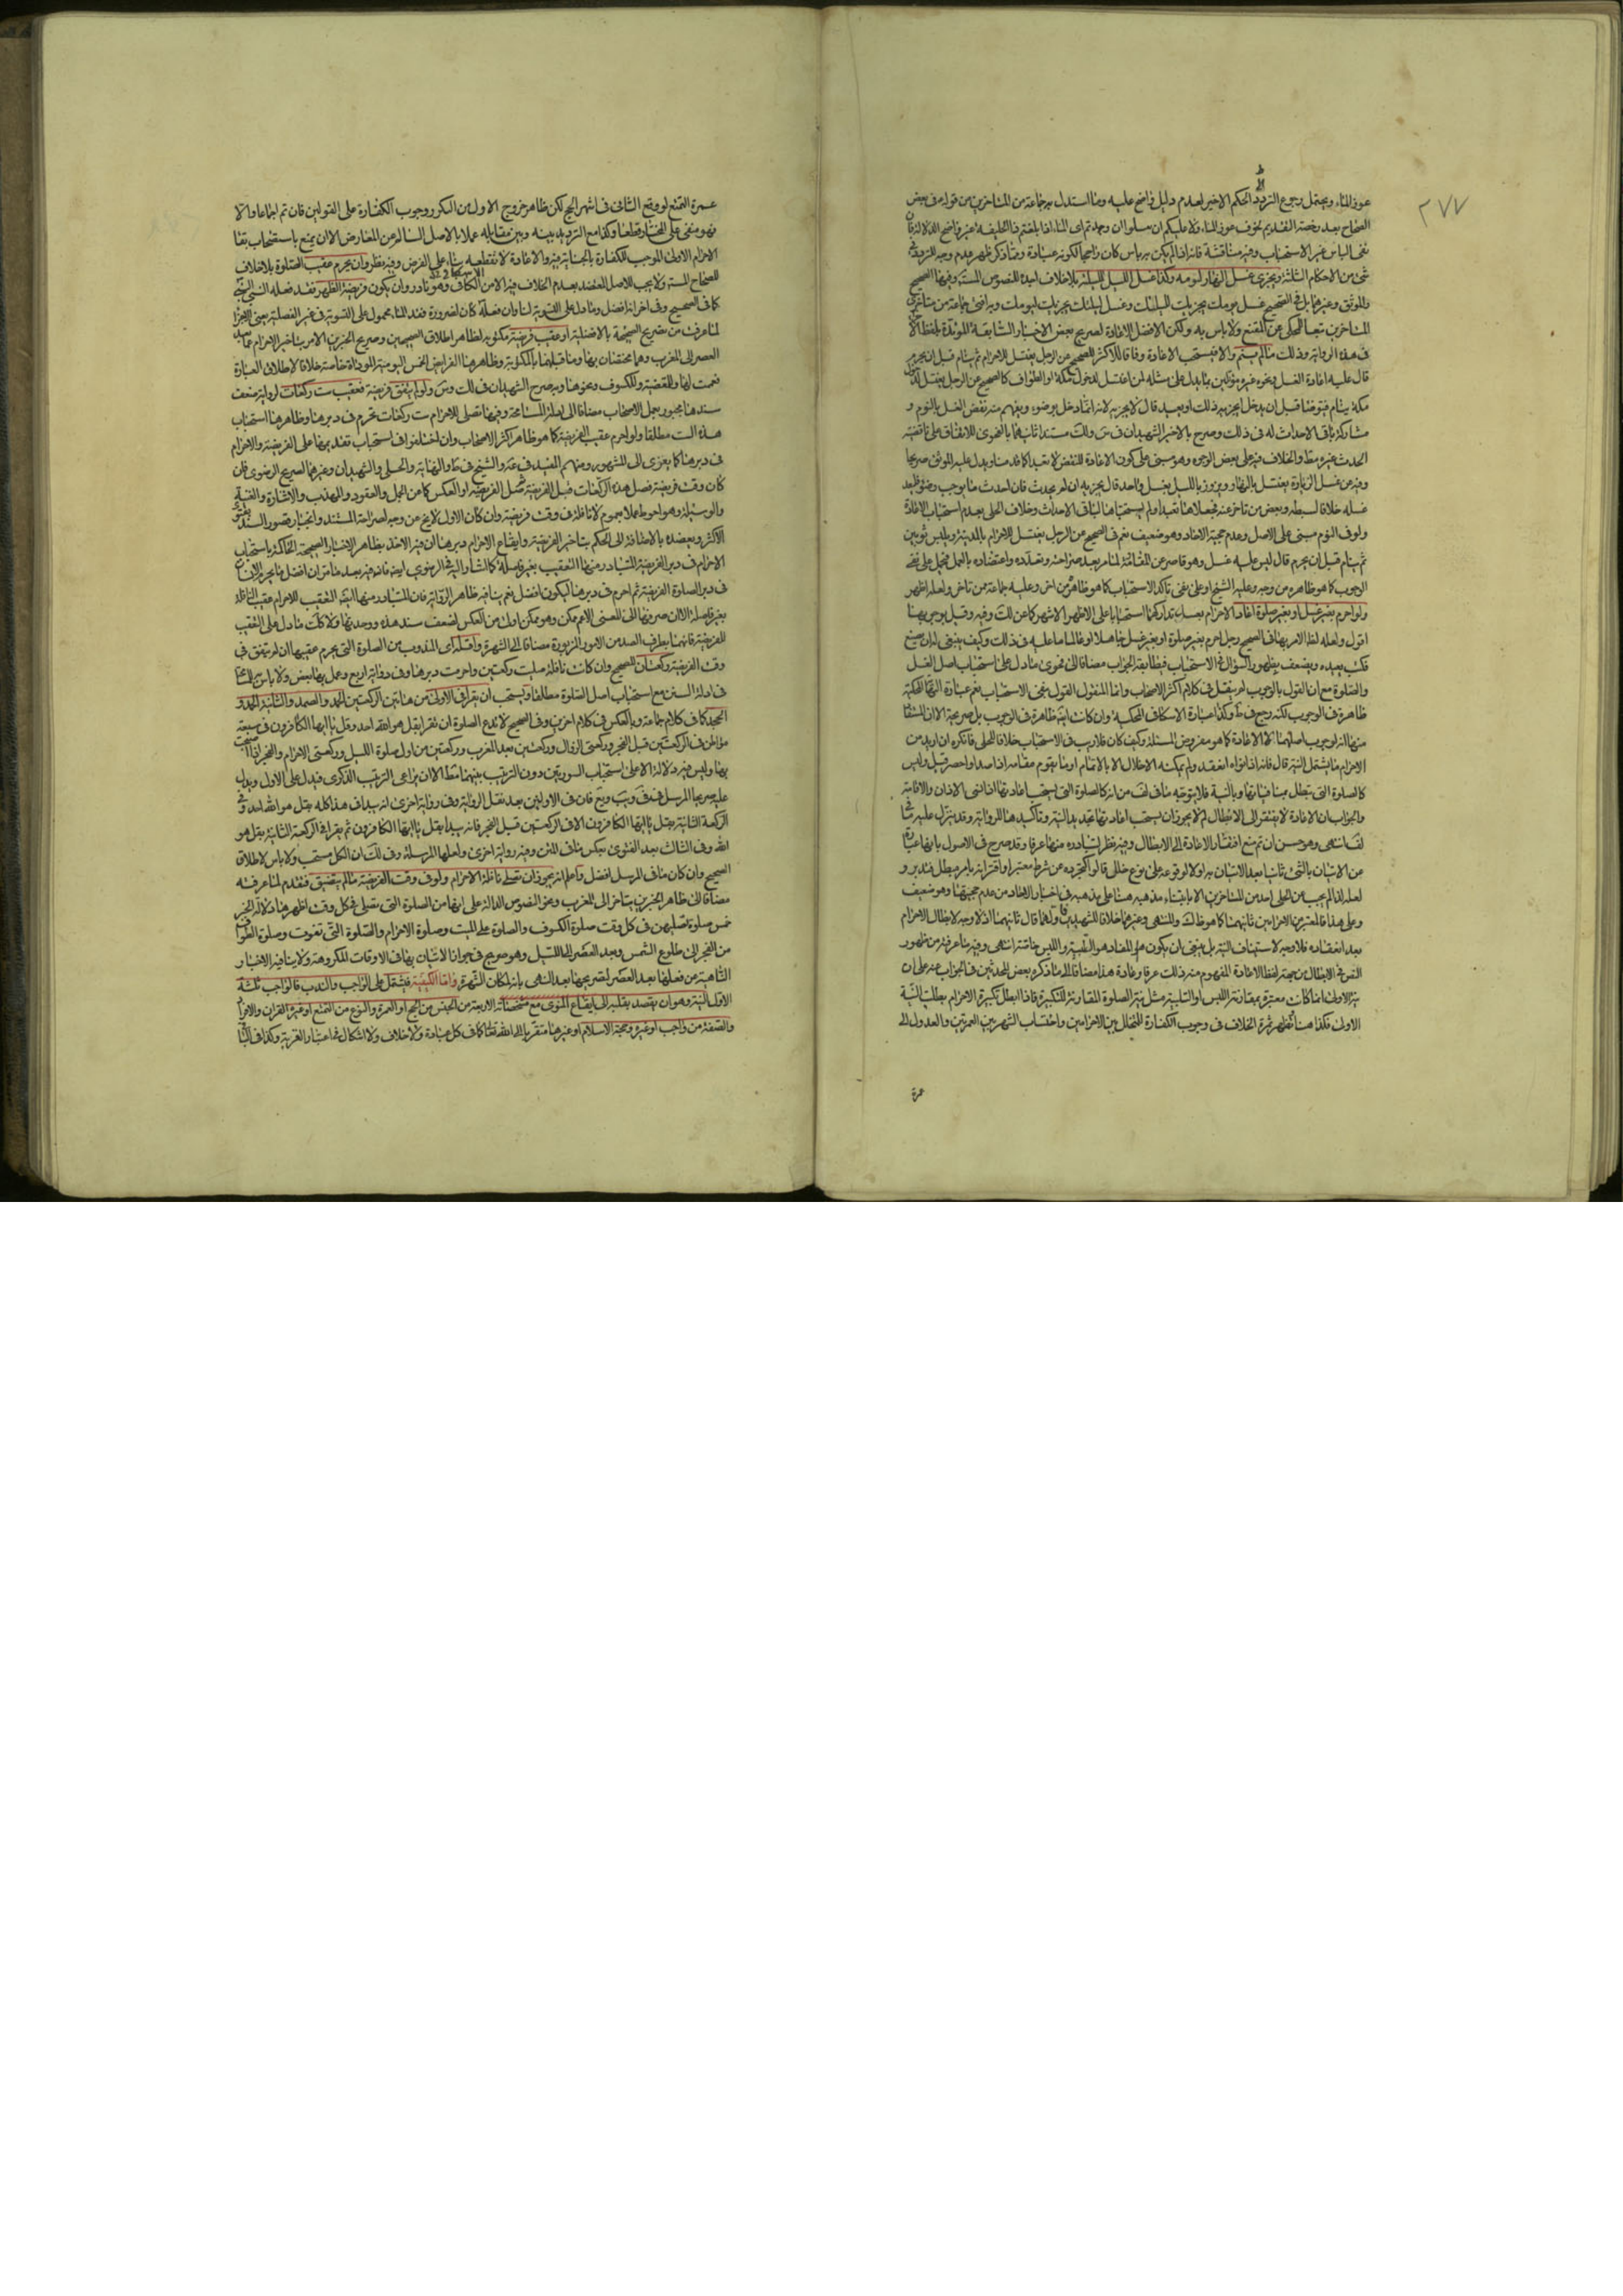 ٢٧٧
عوز الماء ويحتمل رجوع التردد الى الحكم الاخير لعدم دليل واضح عليه وما استدل به جماعة من المتاخرين من قوله في بعض
الصحاح بعد رخصة التقديم لخوف عوز الماء ولا عليكم ان تغتسلوا ان وجدتم ماء اذا بلغتم ذا الحليفة غير واضح الدلالة فان
نفى الباس غير الاستحباب وفيه مناقشة فانه اذا لم يكن به باس كان راجحا لكونه عبادة ومما ذكر ظهر عدم وجه للتردد في
شئ من الاحكام الثلثة ويجزى غسل النهار ليومه وكذا غسل الليل لليلته بلا خلاف اجده للنصوص المستفيضة وفيها الصحيح
والموثق وغيرهما بل في الصحيح غسل يومك يجزيك لليلتك وغسل ليلتك يجزيك ليومك وبه افتى جماعة من متاخرى
المتاخرين تبعا للمحكى عن المقنع ولا باس به ولكن الافضل الاعادة لصريح بعض الاخبار السابقة
في هذه الرواية وذلك ما لم ينم والا فيستحب الاعادة وفاقا للاكثر للصحيح عن الرجل يغتسل للاحرام ثم ينام قبل ان يحرم
قال عليه اعادة الغسل ونحوه غيره مؤيدين بما يدل على مثله لمن اغتسل لدخول مكة او الطواف كالصحيح عن الرجل يغتسل لدخول
مكة ينام فيتوضا قبل ان يدخل ايجزيه ذلك او يعيد قال لا يجزيه لانه انما دخل بوضوء ويفهم منه نقض الغسل بالنوم و
مشاركة باقي الاحداث له في ذلك وصرح بالاخير الشهيدان في س ولك مستندا ثانيهما بالفحوى للاتفاق على ناقضية
الحدث غيره مط والخلاف فيه على بعض الوجوه وهو مبنى على كون الاعادة للنقض لا تعبدا كما قدمنا ويدل عليه الموثق صريحا
وفيه عن غسل الزيارة يغتسل بالنهار ويزور بالليل بغسل واحد قال يجزيه ان لم يحدث فان احدث ما يوجب وضوء فليعد
غسله خلافا لسبطه وبعض من تاخر عنه فجعلاها تعبدا ولم يستحباها لباقي الاحداث وخلاف الحلى بعدم استحباب الاعادة
ولو في النوم مبنى على الاصل وعدم حجية الاحاد وهو ضعيف نعم في الصحيح عن الرجل يغتسل للاحرام بالمدينة ويلبس ثوبين
ثم ينام قبل ان يحرم قال ليس عليه غسل وهو قاصر عن المقاومة لما مر بعد صراحته وتعدده واعتضاده بالعمل فيحمل على نفى
الوجوب كما هو ظاهره من وجه وعليه الشيخ او على نفى تاكد الاستحباب كما هو ظاهره من اخر وعليه جماعة ممن تاخر ولعله اظهر
ولو احرم بغير غسل او بغير صلوة اعاد الاحرام بعد تداركها استحبابا على الاظهر الاشهر كما عن لك وفيه وقيل بوجوبها
اقول ولعله لظ الامر بها في الصحيح رجل احرم بغير صلوة او بغير غسل جاهلا او عالما ما عليه في ذلك وكيف ينبغى له ان يصنع
فكتب يعيده ويضعف بظهور السؤال في الاستحباب فيطابقه الجواب مضافا الى فحوى ما دل على استحباب اصل الغسل
والصلوة مع ان القول بالوجوب لم ينقل في كلام اكثر الاصحاب وانما المنقول القول بنفى الاستحباب نعم عبارة النهاية المحكية
ظاهرة في الوجوب لكنه رجع في ط وكذا عبارة الاسكافى المحكية وان كانت ايضا ظاهرة في الوجوب بل صريحة الا ان المستفاد
منها انه لوجوب اصلهما لا الاعادة كما هو مفروض المسئلة وكيف كان فلا ريب في الاستحباب خلافا للحلى فانكره ان اريد من
الاحرام ما يشتمل النية قال فانه اذا نواه انعقد ولم يمكنه الاخلال الا بالاتمام او ما يقوم مقامه اذا صد او احصر قيل وليس
كالصلوة التى تبطل بمنافياتها وبالنية فلا يتوجه ما في لف من انه كالصلوة التى يستحب اعادتها اذا نسى الاذان والاقامة
والجواب ان الاعادة لا يفتقر الى الابطال لم لا يجوز ان يستحب اعادتها تجديد النية وتاكيدها للرواية وقد ينزل عليه ما في
لف انتهى وهو حسن ان تم منع افتقار الاعادة الى الابطال وفيه نظر لتبادره منها عرفا وقد صرح في الاصول بانها عبارة
عن الاتيان بالشئ ثانيا بعد الاتيان به اولا لوقوعه على نوع خلل قالوا كتجرده عن شرط معتبر او اقترانه بامر مبطل فتدبر و
لعله لذا لم يجب عن الحلى احد من المتاخرين الا بابتناء مذهبه هنا على مذهبه في اخبار الاحاد من عدم حجيتها وهو ضعيف
وعلى هذا فالمعتبر من الاحرامين ثانيهما كما هو ظاهر لك والمنتهى وغيرهما خلافا للشهيدين وانهما قال ثانيهما اذ لا وجه لابطال الاحرام
بعد انعقاده فلا وجه لاستيناف النية بل ينبغى ان يكون هو المعاد هو التلبية واللبس خاصة انتهى وفيه ما عرفته من ظهور
النص في الابطال من جهة لفظ الاعادة المفهوم منه ذلك عرفا وعادة هذا مضافا الى ما ذكره بعض المحدثين في الجواب عنه على ان
نية الاولى اذا كانت معتبرة بمقارنة اللبس او التلبية مثل نية الصلوة المقارنة للتكبيرة فاذا ابطل تكبيرة الاحرام بطلت النية
الاولى فكذا هنا وتظهر ثمرة الخلاف في وجوب الكفارة للمتخلل بين الاحرامين واحتساب الشهر بين العمرتين والعدول الى
عمرة
عمرة التمتع لو وقع الثانى في اشهر الحج لكن ظاهر خروج الاول من السكر ووجوب الكفارة على القولين فان تم اجماعا والا
فهو منفى على المختار قطعا وكذا مع الترديد بينه وبين مقابله عملا بالاصل السالم عن المعارض الا ان يمنع باستصحاب بقاء
الاحرام الاول الموجب للكفارة بالجناية فيه والاعادة لا تقطعه بناء على الفرض وفيه نظر وان يحرم عقيب الصلوة بلا خلاف
للصحاح المستفيضة ولا يجب للاصل المعتضد بعدم الخلاف فيه الا من الاسكافى وهو نادر وان يكون فريضة الظهر فقد فعله النبى
كما في الصحيح وفى اخر انه افضل وما دل على التسوية بينها وان فعله كان لضرورة فقد الماء محمول على التسوية في غير الفضيلة يعنى الاجزاء
لما عرفت من تصريح الصحيحة بالافضلية او عقيب فريضة مكتوبة لظاهر اطلاق الصحيحين وصريح الخبرين الامرين بتاخير الاحرام عما بعد
العصر الى المغرب وهما مختصان بها وما قبلهما بالمكتوبة وظاهرهما الفرائض الخمس اليومية المؤداة خاصة خلافا لاطلاق العبارة
فعمت لها وللمقضية وللكسوف ونحوها وبه صرح الشهيدان في لك وس ولو لم يتفق فريضة فعقيب ست ركعات لرواية ضعف
سندها مجبور بعمل الاصحاب مضافا الى ادلة المسامحة وفيها تصلى للاحرام ست ركعات تحرم في دبرها وظاهرها استحباب
هذه الست مطلقا ولو احرم عقيب الفريضة كما هو ظاهر اكثر الاصحاب وان اختلفوا في استحباب تقديمها على الفريضة والاحرام
في دبرها كما يعزى الى المشهور ومنهم المفيد في عة والشيخ في ط والنهاية والحلى والشهيدان وغيرهما لصريح الرضوى فان
كان وقت فريضة فصل هذه الركعات قبل الفريضة ثم صل الفريضة او العكس كما عن الجمل والعقود والمهذب والاشارة والغنية
والوسيلة وهو احوط عملا بعموم لا نافلة في وقت فريضة وان كان الاول لا يخ عن وجه لصراحة المستند وانجبار قصور السند بفتوى
الاكثر ويعضده بالاضافة الى الحكم بتاخير الفريضة وايقاع الاحرام دبرها ان فيه الاخذ بظاهر الاخبار الصحيحة الحاكمة باستحباب
الاحرام في دبر الفريضة المتبادر منها التعقيب بغير فاصلة كما اشار اليه في الرضوى ايضا فانه فيه بعد ما مر ان افضل ما يحرم الانسان
في دبر الصلوة الفريضة ثم احرم في دبرها ليكون افضل نعم ينافيه ظاهر الرواية فان المتبادر منها ايضا التعقيب للاحرام عقيب النافلة
بغير فاصلة الا ان صرفها الى المعنى الاعم ممكن وهو ممكن اولى من العكس لضعف سند هذه ووحدتها ولا كك ما دل على التعقيب
للفريضة فانهما بطرف الضد من الامور المزبورة مضافا الى الشهرة واقله اى المندوب من الصلوة التى يحرم عقيبها ان لم يتفق في
وقت الفريضة ركعتان للصحيح وان كانت نافلة صليت ركعتين واحرمت دبرها وفى رواية اربع وعمل بها بعض ولا باس للتسامح
في ادلة السنن مع استحباب اصل الصلوة مطلقا ويستحب ان يقرا في الاولى من هاتين الركعتين الحمد والصمد والثانية الحمد و
الجحد كما في كلام جماعة وبالعكس في كلام اخرين وفى الصحيح لا تدع الصلوة ان تقرا بقل هو الله احد وقل يا ايها الكافرون في سبعة
مواطن في الركعتين قبل الفجر وركعتى الزوال وركعتين بعد المغرب وركعتين من اول صلوة الليل وركعتى الاحرام والفجر اذا اصبحت
بها وليس فيه دلالة الا على استحباب السورتين دون الترتيب بينهما مط الا ان يراعى الترتيب الذكرى فيدل على الاول ويدل
عليه صريحا المرسل في في ويب ويع فان في الاولين بعد نقل الرواية وفى رواية اخرى انه يبدا في هذا كله بقل هو الله احد وفى
الركعة الثانية بقل يا ايها الكافرون الا في الركعتين قبل الفجر فانه يبدا بقل يا ايها الكافرون ثم يقرا في الركعة الثانية بقل هو
الله وفى الثالث بعد الفتوى بعكس ما في المتن وفيه رواية اخرى ولعلها المرسلة وفى لك ان الكل مستحب ولا باس لاطلاق
الصحيح وان كان ما في المرسل افضل واعلم انه يجوز ان تصلى نافلة الاحرام ولو في وقت الفريضة ما لم يتضيق فتقدم لما عرفته
مضافا الى ظاهر الخبرين بتاخر الى المغرب ونحو النصوص الدالة على انها من الصلوة التى تصلى في كل وقت اظهرها دلالة الخبر
خمس صلوة تصليهن في كل وقت صلوة الكسوف والصلوة على الميت وصلوة الاحرام والصلوة التى تفوت وصلوة الطواف
من الفجر الى طلوع الشمس وبعد العصر الى الليل وهو صريح في جواز الاتيان بها في الاوقات المكروهة ولا ينافيه الاخبار
الناهية عن فعلها بعد العصر لتصريحها بعد النهى بانه لمكان الشهرة واما الكيفية فتشتمل على الواجب والندب فالواجب ثلثة
الاول النية وهو ان يقصد بقلبه الى ايقاع المنوى مع مشخصاته الاربعة من الجنس من الحج او العمرة والنوع من التمتع او غيره القران والافراد
والصفة من واجب او غيره وحجة الاسلام او غيرها متقربا الى الله تعالى كما في كل عبادة ولا خلاف ولا اشكال في اعتبار القربة وكذا في الباقى